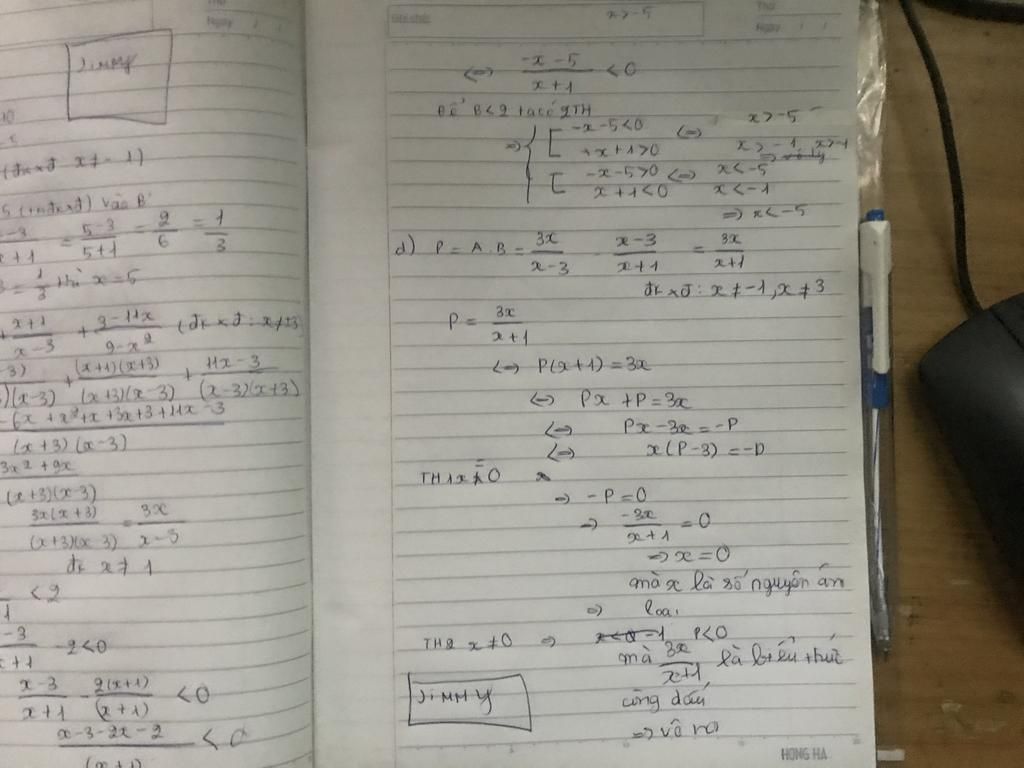 Thứ
Ngày
JiMMY
(đkxđ x ≠ -1)
5 (tmđkxđ) vào B
= 5-3/5+1 = 2/6 = 1/3
= 1/3 thì x = 5
+ x+1/x-3 + 3-11x/9-x² (đkxđ: x ≠ ±3)
+ (x+1)(x+3)/(x+3)(x-3) + 11x-3/(x-3)(x+3)
-6x + x²+x+3x+3+11x-3
(x+3)(x-3)
3x² + 9x
(x+3)(x-3)
3x(x+3)/(x+3)(x-3) = 3x/x-3
đk x ≠ 1
< 2
-3/x+1 - 2 < 0
x-3/x+1 - 2(x+1)/(x+1) < 0
x-3-2x-2 < 0
(x+1)
Ghi chú:
x > -5
Thứ
Ngày
⇔ -x-5/x+1 < 0
Để B < 2 ta có 2TH
⇒ { [ -x-5 < 0 ⇔ x > -5
+x+1 > 0 x > -1 x > -1
[ -x-5 > 0 ⇔ x < -5
x+1 < 0 x < -1
⇒ x < -5
d) P = A.B = 3x/x-3 . x-3/x+1 = 3x/x+1
đkxđ: x ≠ -1, x ≠ 3
P = 3x/x+1
⇔ P(x+1) = 3x
⇔ Px + P = 3x
⇔ Px - 3x = -P
⇔ x(P-3) = -P
TH1 x = 0
⇒ -P = 0
⇒ -3x/x+1 = 0
⇒ x = 0
mà x là số nguyên âm
⇒ loại
TH2 x ≠ 0 ⇒ P < 0
mà 3x/x+1 là biểu thức
cùng dấu
⇒ vô no
JiMMY
HONG HA